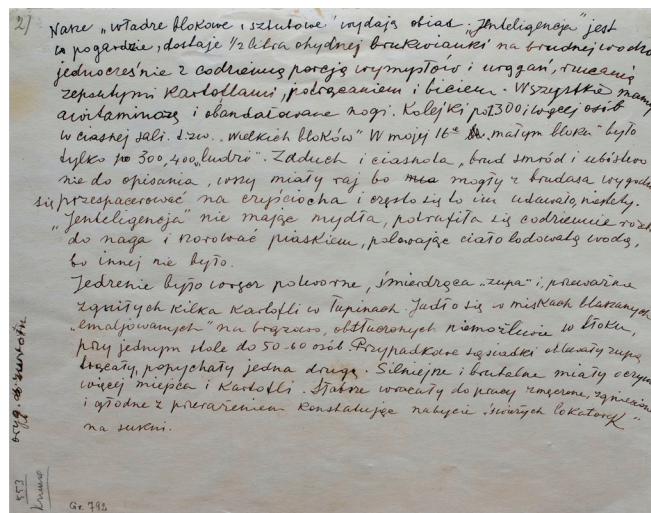 2)
Nasze „władze blokowe i sztubowe" wydają obiad. „Jenteligencja" jest
w pogardzie, dostaje 1/2 litra ohydnej brukwianki na brudnej wodzie
jednocześnie z codzienną porcją wymysłów i urągań, rzucaniem
zepsutymi kartoflami, potrącaniem i biciem. Wszystkie mamy
awitaminozę i obandażowane nogi. Kolejki po 1300 i więcej osób
w ciasnej sali t.zw. „wielkich bloków" W mojej 16ce „małym bloku" było
tylko 300, 400 „ludzi". Zaduch i ciasnota, brud smród i ubóstwo
nie do opisania, wszy miały raj bo mogły z brudasa wygodnie
się przespacerować na czyściocha i często się to im udawało, niestety.
„Jenteligencja" nie mając mydła, potrafiła się codziennie
do naga i szorować piaskiem, polewając ciało lodowatą wodą,
bo innej nie było.
Jedzenie było wręcz potworne, śmierdząca „zupa" i, przeważnie
zgniłych kilka kartofli w łupinach. Jadło się w miskach blaszanych
„emaljowanych" na brązowo, obtłuczonych niemożliwie w tłoku,
przy jednym stole do 50-60 osób. Przypadkowe sąsiadki oblewały zupą
trącały, popychały jedna drugą. Silniejsze i brutalne miały
więcej miejsca i kartofli. Słabsze wracały do pracy zmęczone, zgniecione
i głodne z przerażeniem konstatując nabycie „świeżych lokatorek"
na sukni.
553
Gr. 792